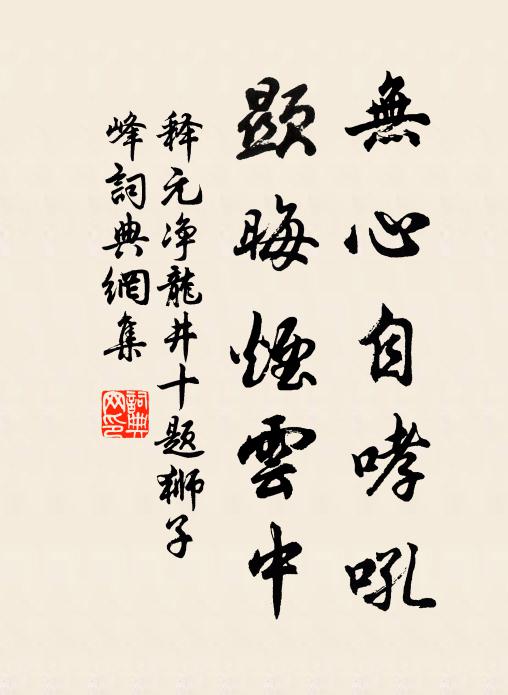 無心自哮吼
顯晦煙雲中
释元净龍井十题獅子
峰詞典網集
詞典
网印